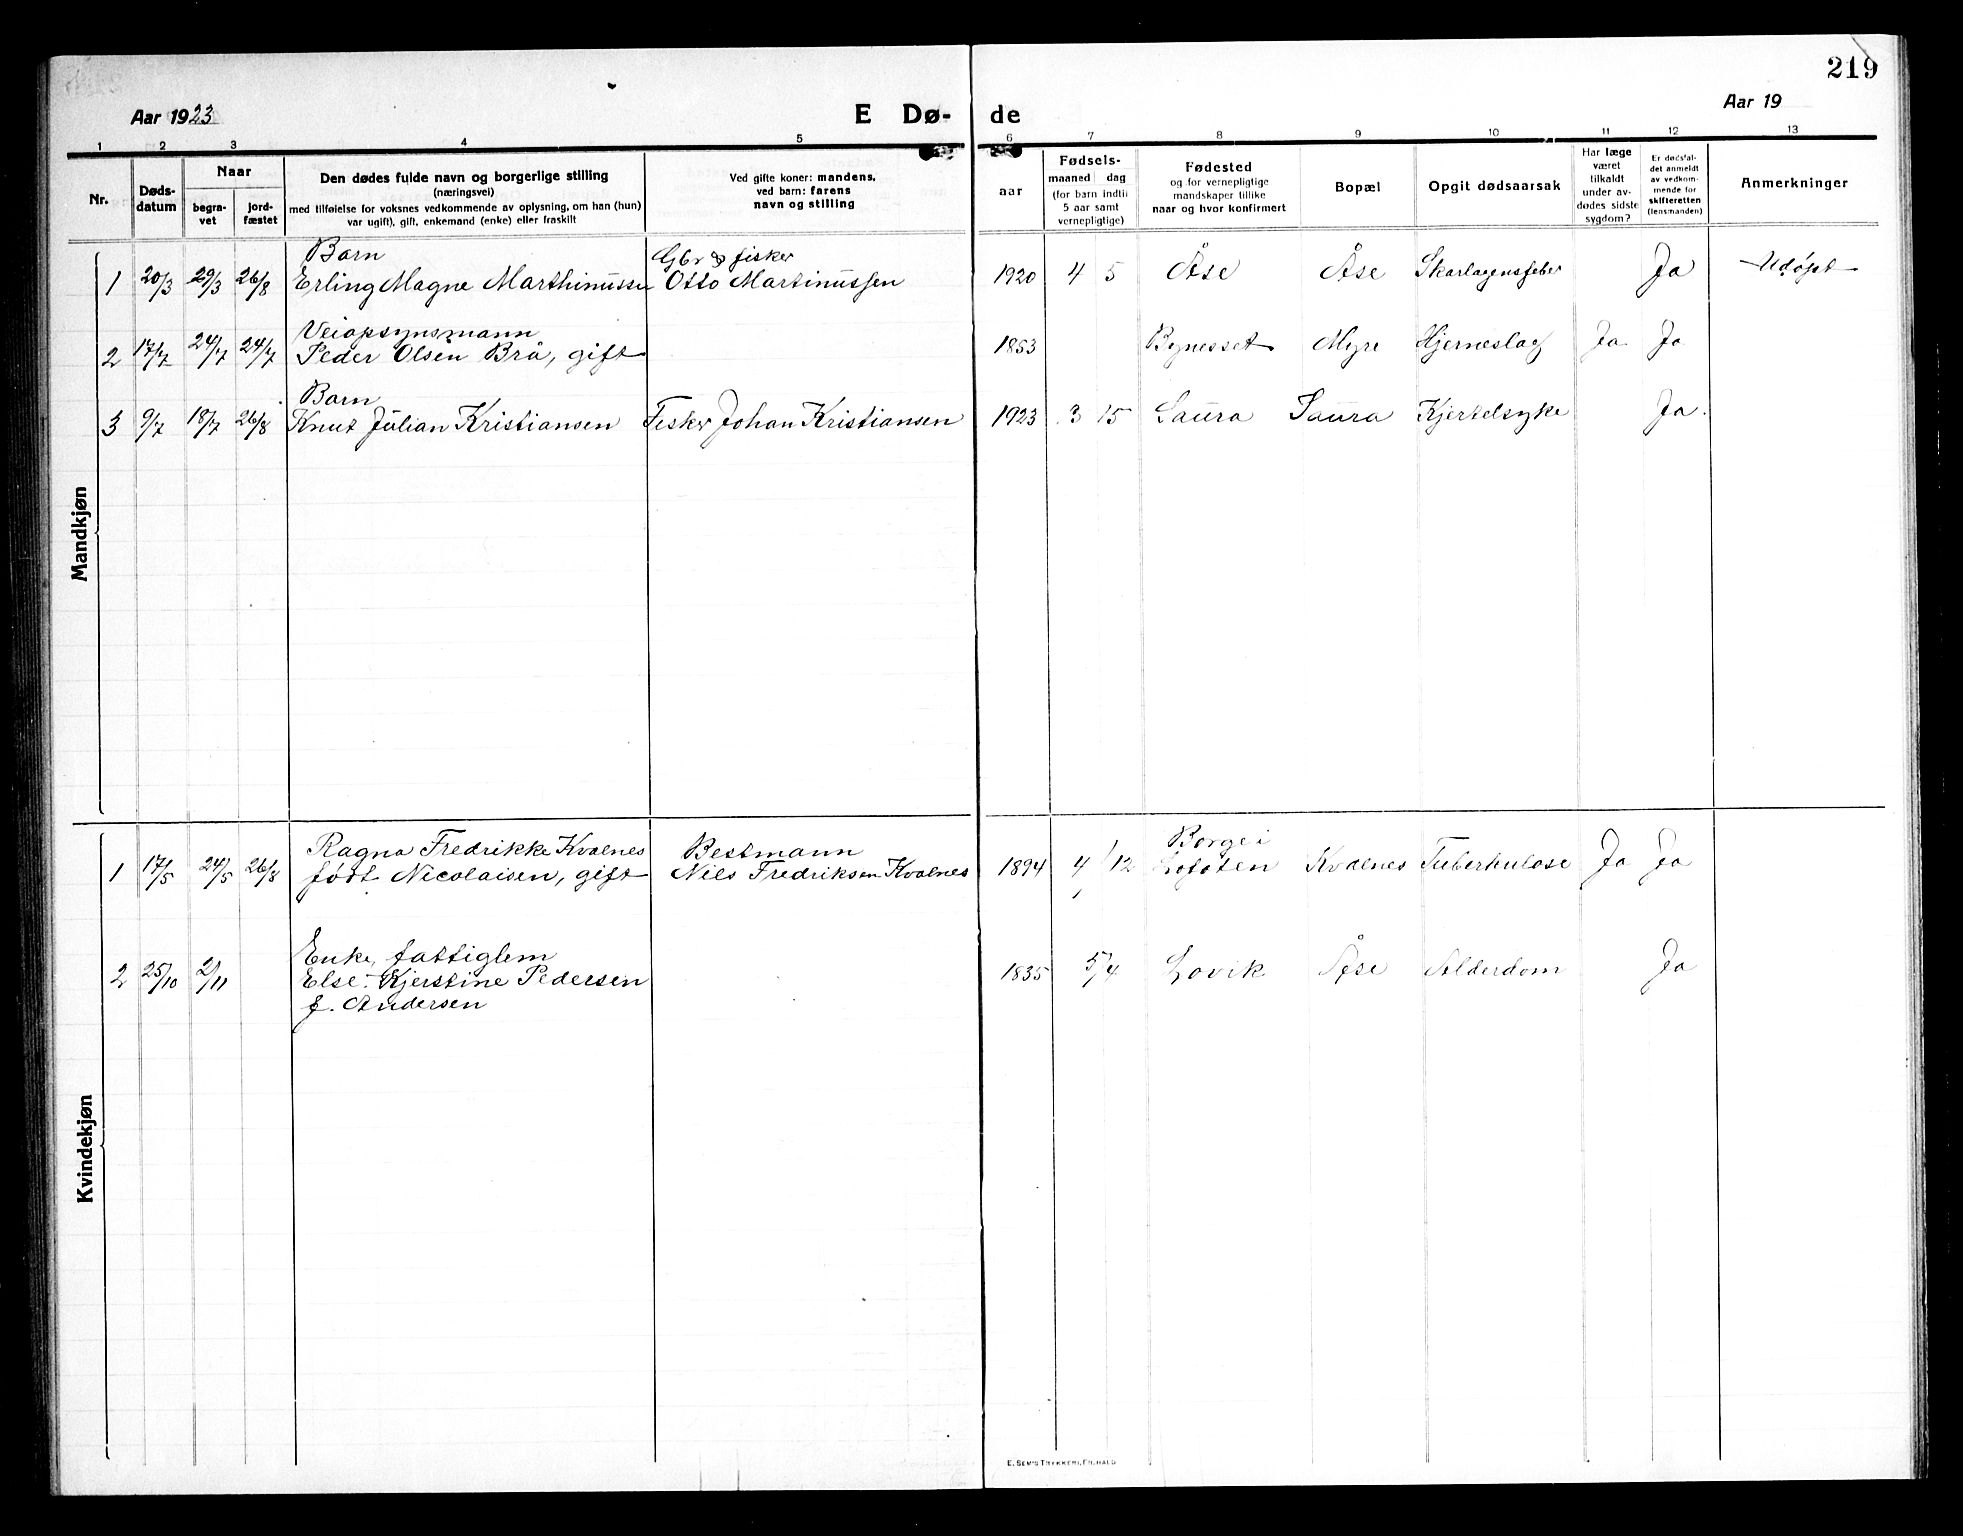 219
Aar 1923
E Dø-
de
Aar 19
1 2 3 4 5 6 7 8 9 10 11 12 13
Nr.
Døds-
datum
Naar
begra-
vet
jord-
fæstet
Den dødes fulde navn og borgerlige stilling
(næringsvei)
med tilføielse for voksnes vedkommende av oplysning, om han (hun)
var ugift), gift, enkemand (enke) eller fraskilt
Ved gifte koner: mandens,
ved barn: farens
navn og stilling
aar
Fødsels-
maaned dag
(for barn indtil
5 aar samt
vernepligtige)
Fødested
og for vernepligtige
mandskaper tillike
naar og hvor konfirmert
Bopæl
Opgit dødsaarsak
Har læge
været
tilkaldt
under av-
dødes sidste
sygdom?
Er dødsfal-
det anmeldt
av vedkom-
mende for
skifteretten
(lensmanden)
Anmerkninger
Mandkjøn
Barn Gbr & fisker
1 20/3 29/3 26/8 Erling Magne Marthinussen Otto Martinussen 1920 4 5 Åse Åse Skarlagensfeber Ja Udøpt
Veiopsynsmann
2 17/7 24/7 24/7 Peder Olsen Brå, gift 1853 Bynesset Myre Hjerneslag Ja Ja
Barn
3 9/7 18/7 26/8 Knut Julian Kristiansen Fisker Johan Kristiansen 1923 3 15 Saura Saura Kjertelsyke Ja.
Kvindekjøn
Ragna Fredrikke Kvalnes Bestmann Borge i
1 17/5 24/5 26/8 født Nicolaisen, gift Nils Fredriksen Kvalnes 1894 4/12 Lofoten Kvalnes Tuberkulose Ja Ja
Enke, fattiglem
2 25/10 2/11 Else Kjerstine Pedersen 1835 5/4 Lovik Åse Alderdom Ja
f. Andersen
E. SEM'S TRYKKERI, FR.HALD